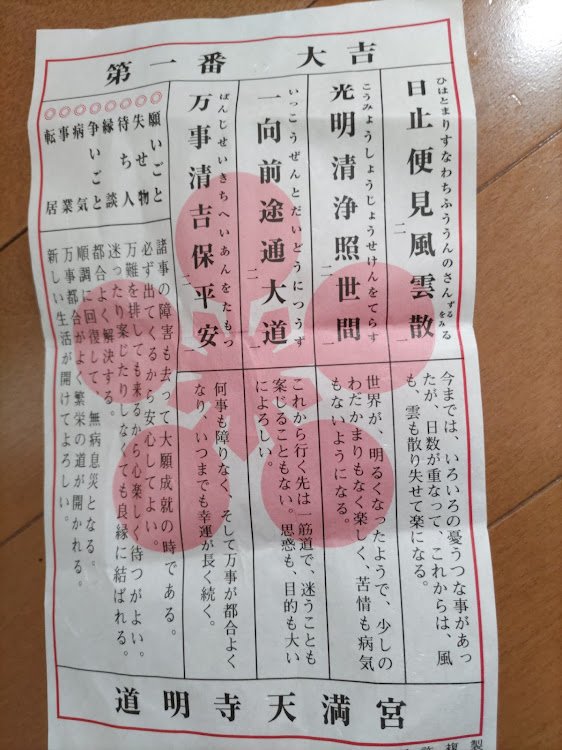 第一番 大吉
ひはとまりすなわちふううんのさんずるをみる
日止便見二風雲散一
今までは、いろいろの憂うつな事があっ
たが、日数が重なって、これからは、風
も、雲も散り失せて楽になる。
こうみょうしょうじょうせけんをてらす
光明清浄照二世間一
世界が、明るくなったようで、少しの
わだかまりもなく楽しく、苦情も病気
もないようになる。
いっこうぜんとだいどうにつうず
一向前途通二大道一
これから行く先は一筋道で、迷うことも
案じることもない。思惑も、目的も大い
によろしい。
ばんじせいきちへいあんをたもつ
万事清吉保二平安一
何事も障りなく、そして万事が都合よく
なり、いつまでも幸運が長く続く。
◎願いごと
◎失せ物
◎待ち人
◎縁談
◎争いごと
◎病気
◎事業
◎転居
諸事の障害も去って大願成就の時である。
必ず出てくるから安心してよい。
万難を排しても来るから心楽しく待つがよい。
迷ったり案じたりしなくても良縁に結ばれる。
都合よく解決する。
順調に回復して、無病息災となる。
万事都合がよく繁栄の道が開かれる。
新しい生活が開けてよろしい。
道明寺天満宮
複製